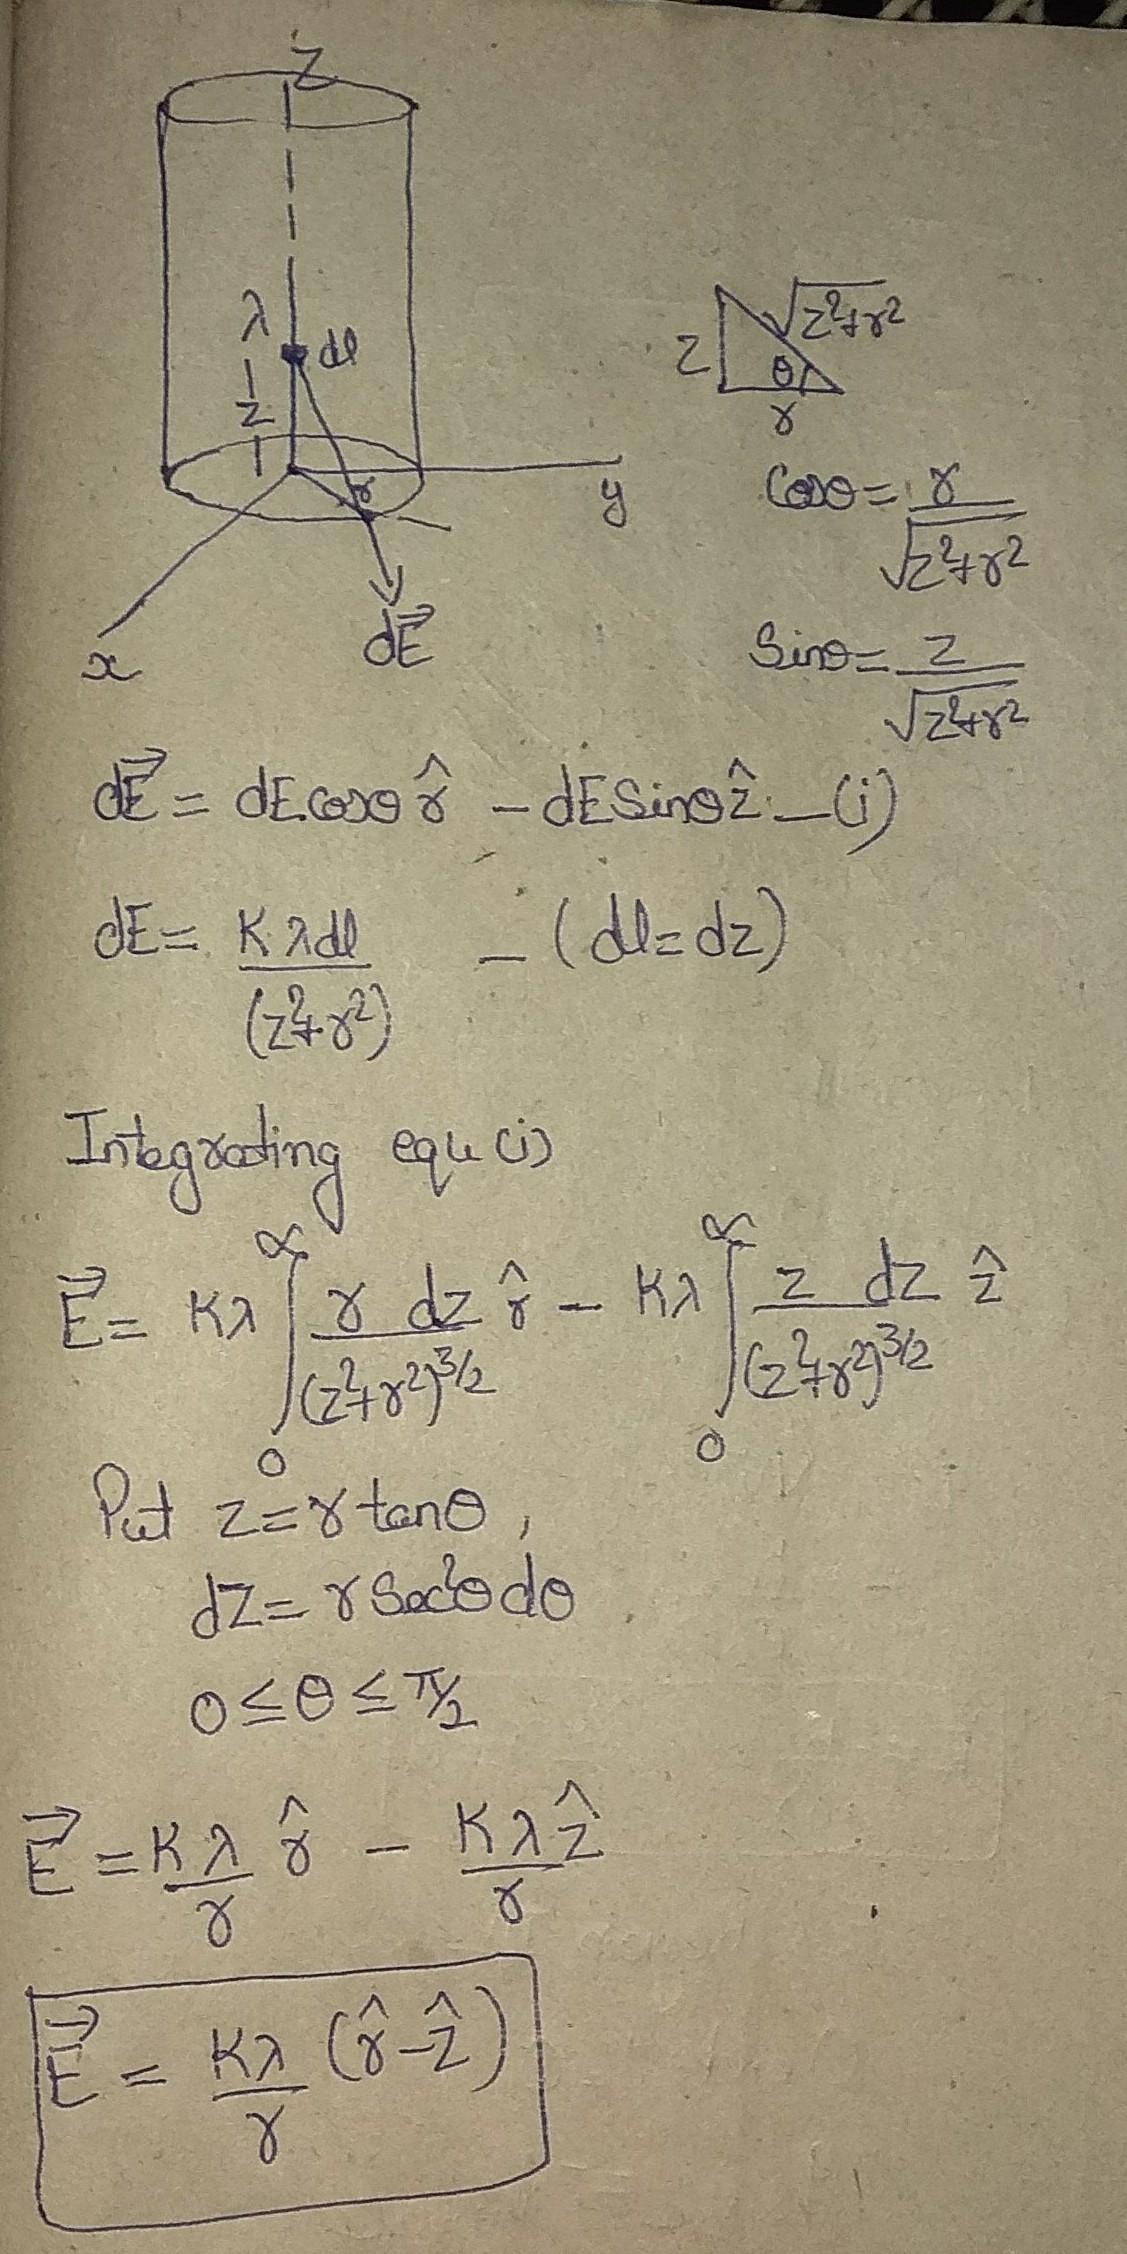 Z
λ
dl
z
r
y
x
dE⃗
z
√z²+r²
θ
r
Cosθ = r / √z²+r²
Sinθ = z / √z²+r²
dE⃗ = dE cosθ r̂ − dE Sinθ ẑ − (i)
dE = Kλdl / (z²+r²) − (dl = dz)
Integrating equ (i)
E⃗ = Kλ ∫₀^∞ r dz / (z²+r²)^3/2 r̂ − Kλ ∫₀^∞ z dz / (z²+r²)^3/2 ẑ
Put z = r tanθ,
dz = r Sec²θ dθ
0 ≤ θ ≤ π/2
E⃗ = Kλ/r r̂ − Kλ/r ẑ
E⃗ = Kλ/r (r̂ − ẑ)